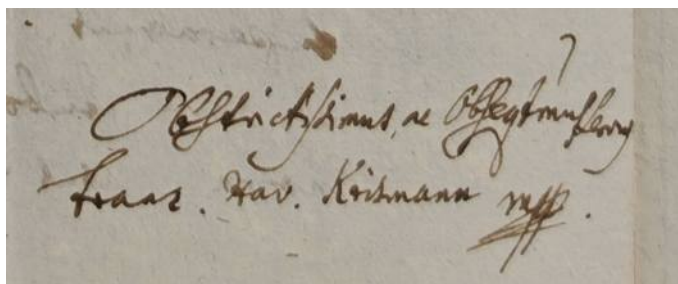 Obstrictissimus, ac Obseqtmus Servus
Franz. Xav. Krismann mpp.